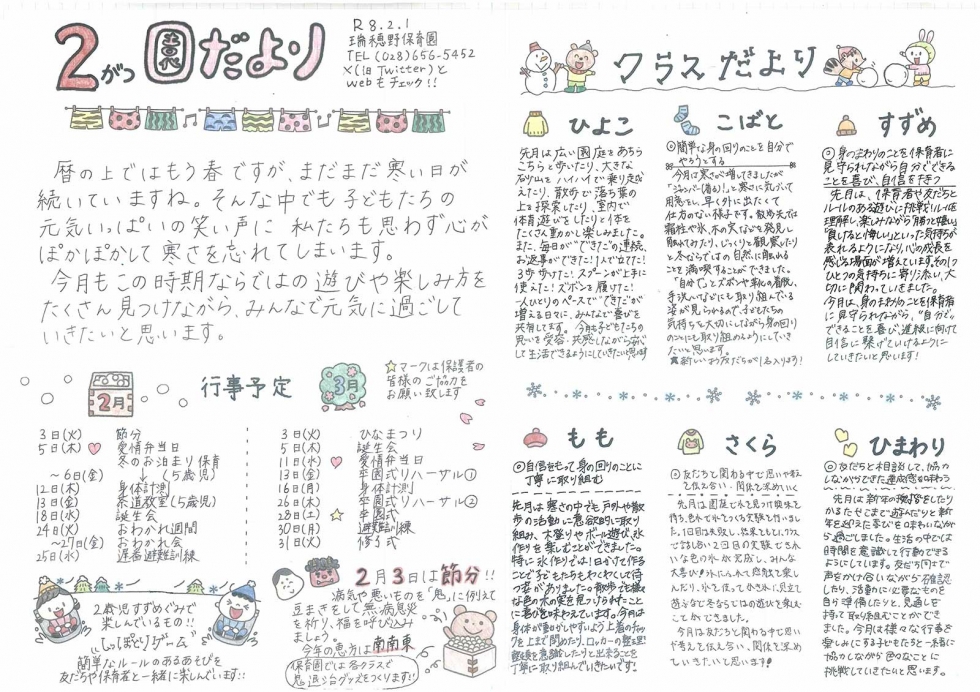 2がつ 園だより
R8.2.1
瑞穂野保育園
TEL (028)656-5452
X(旧Twitter)と
webもチェック!!
暦の上ではもう春ですが、まだまだ寒い日が
続いていますね。そんな中でも子どもたちの
元気いっぱいの笑い声に 私たちも思わず心が
ぽかぽかして寒さを忘れてしまいます。
今月もこの時期ならではの遊びや楽しみ方を
たくさん見つけながら、みんなで元気に過ごして
いきたいと思います。
2月
行事予定
3月
☆マークは保護者の
皆様のご協力を
お願い致します
3日(火) 節分
5日(木) ♡ 愛情弁当日
冬のお泊まり保育
～6日(金) ↓ (5歳児)
12日(木) 身体計測
13日(金) 茶道教室(5歳児)
18日(水) 誕生会
24日(火) おわかれ週間
～27日(金) おわかれ会
25日(水) 遅番避難訓練
3日(火) ひなまつり
5日(木) 誕生会
11日(水) ♡ 愛情弁当日
13日(金) 卒園式リハーサル①
16日(月) 身体計測
26日(木) 卒園式リハーサル②
28日(土) ☆ 卒園式
30日(月) 避難訓練
31日(火) 修了式
2歳児すずめぐみで
楽しんでいるもの!!
"しっぽとりゲーム"
簡単なルールのあるあそびを
友だちや保育者と一緒に楽しんでいます!!
2月3日は節分!!
病気や悪いものを「鬼」に例えて
豆まきをして無病息災
を祈り、福を呼び込み
ましょう。
今年の恵方は南南東
保育園では各クラスで
鬼退治グッズをつくります!!
クラスだより
ひよこ
先月は広い園庭をあちら
こちらと歩いたり、大きな
砂山をハイハイで乗り越
えたり、散歩で落ち葉の
上を探索したり、室内で
体育遊びをしたりと体を
たくさん動かし楽しみました。
また、毎日が"できた"の連続、
お返事ができた!1人で立てた!
3歩歩けた!スプーンが上手に
使えた!ズボンを履けた!
一人ひとりのペースで"できた"が
増える日々に、みんなで喜びを
共有してます。今月も子どもたちの
思いを受容・共感しながら安心
して生活できるようにしていきたい思います
こばと
◎簡単な身の回りのことを自分で
やろうとする
今月は寒さが増してきましたが
「ジャンパー(着る)!」と寒さに気づいて
用意をし、早く外に出たくて
仕方のない様子です。散歩先では
霜柱や氷、木の実などを発見し
触れてみたり、じっくりと観察したり
と冬ならではの自然に触れる
ことを満喫することができました。
"自分で"とズボンや靴の着脱、
手洗いなどにも取り組んでいる
姿が見られるので、子どもたちの
気持ちを大切にしながら身の回り
のことにも取り組めるようにしていき
たいと思います。
すずめ
◎身のまわりのことを保育者に
見守られながら自分でできる
ことを喜び、自信を持つ
先月は、保育者や友だちと
ルールのある遊びに挑戦!ルールを
理解し楽しみながら「勝つと嬉しい」
「負けると悔しい」といった気持ちが
表れるようになり、心の成長を
感じる場面が増えています。その1つ
ひとつの気持ちに寄り添い、大
切に関わっていきました。
今月は、身のまわりのことを保育者
に見守られながら、"自分で"
できることを喜び、進級に向けて
自信に繋げていけるように
していきたいと思います!
もも
◎自信をもって身の回りのことに
丁寧に取り組む
先月は寒さの中でも戸外や散
歩の活動に意欲的に取り
組み、木登りやボール遊び、氷
作りを楽しむことができました。
特に氷作りでは1日かけて作る
ことで子どもたちもわくわくして待
つ姿がありました。散歩でも様々
な色の木の実を見つけられたこと
に喜びを味わえています。今月は
さくら
◎友だちと関わる中で思いや考え
を伝え合い、関係を深めていく
ひまわり
◎友だちと相談して、協力
しながらできた達成感を味わう
先月は新年の挨拶をしたり
かるたやこまで遊んだりと新
年を迎えた喜びを味わいなが
ら過ごしました。生活の中では
時間を意識して行動できる
ようにしています。友だち同士で
声をかけ合いながら確認
したり、活動に必要なものを
自分で準備したりと、見通しを
持って取り組むことができ
ました。今月は様々な行事を
楽しみに子どもたちと一緒に
協力しながら色々なことに
挑戦していきたいと思います。